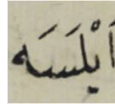 اَبْلَسَه